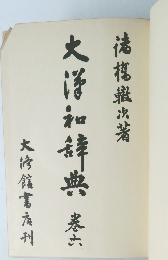 諸橋轍次著
大漢和辭典 卷六
大修館書店刊